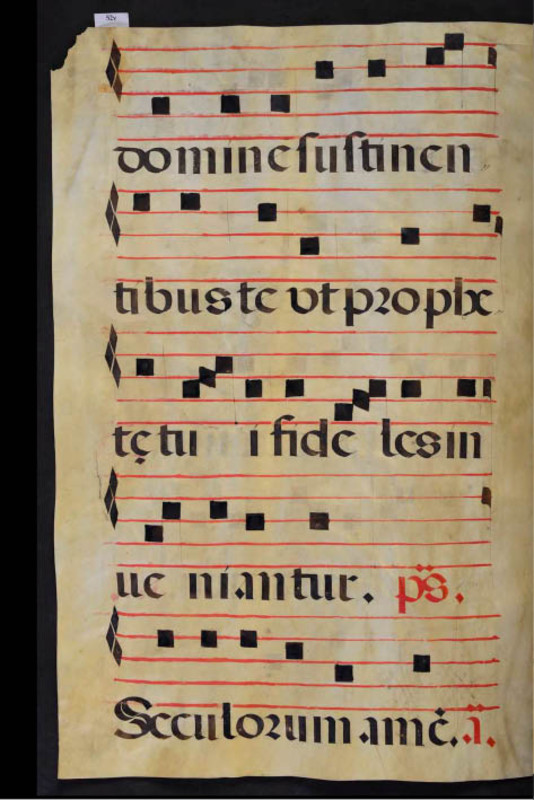 52v
domine sustinen
tibus te vt prophe
tę tu i fide les in
ue niantur. ps̈.
Seculorum amē. ä.